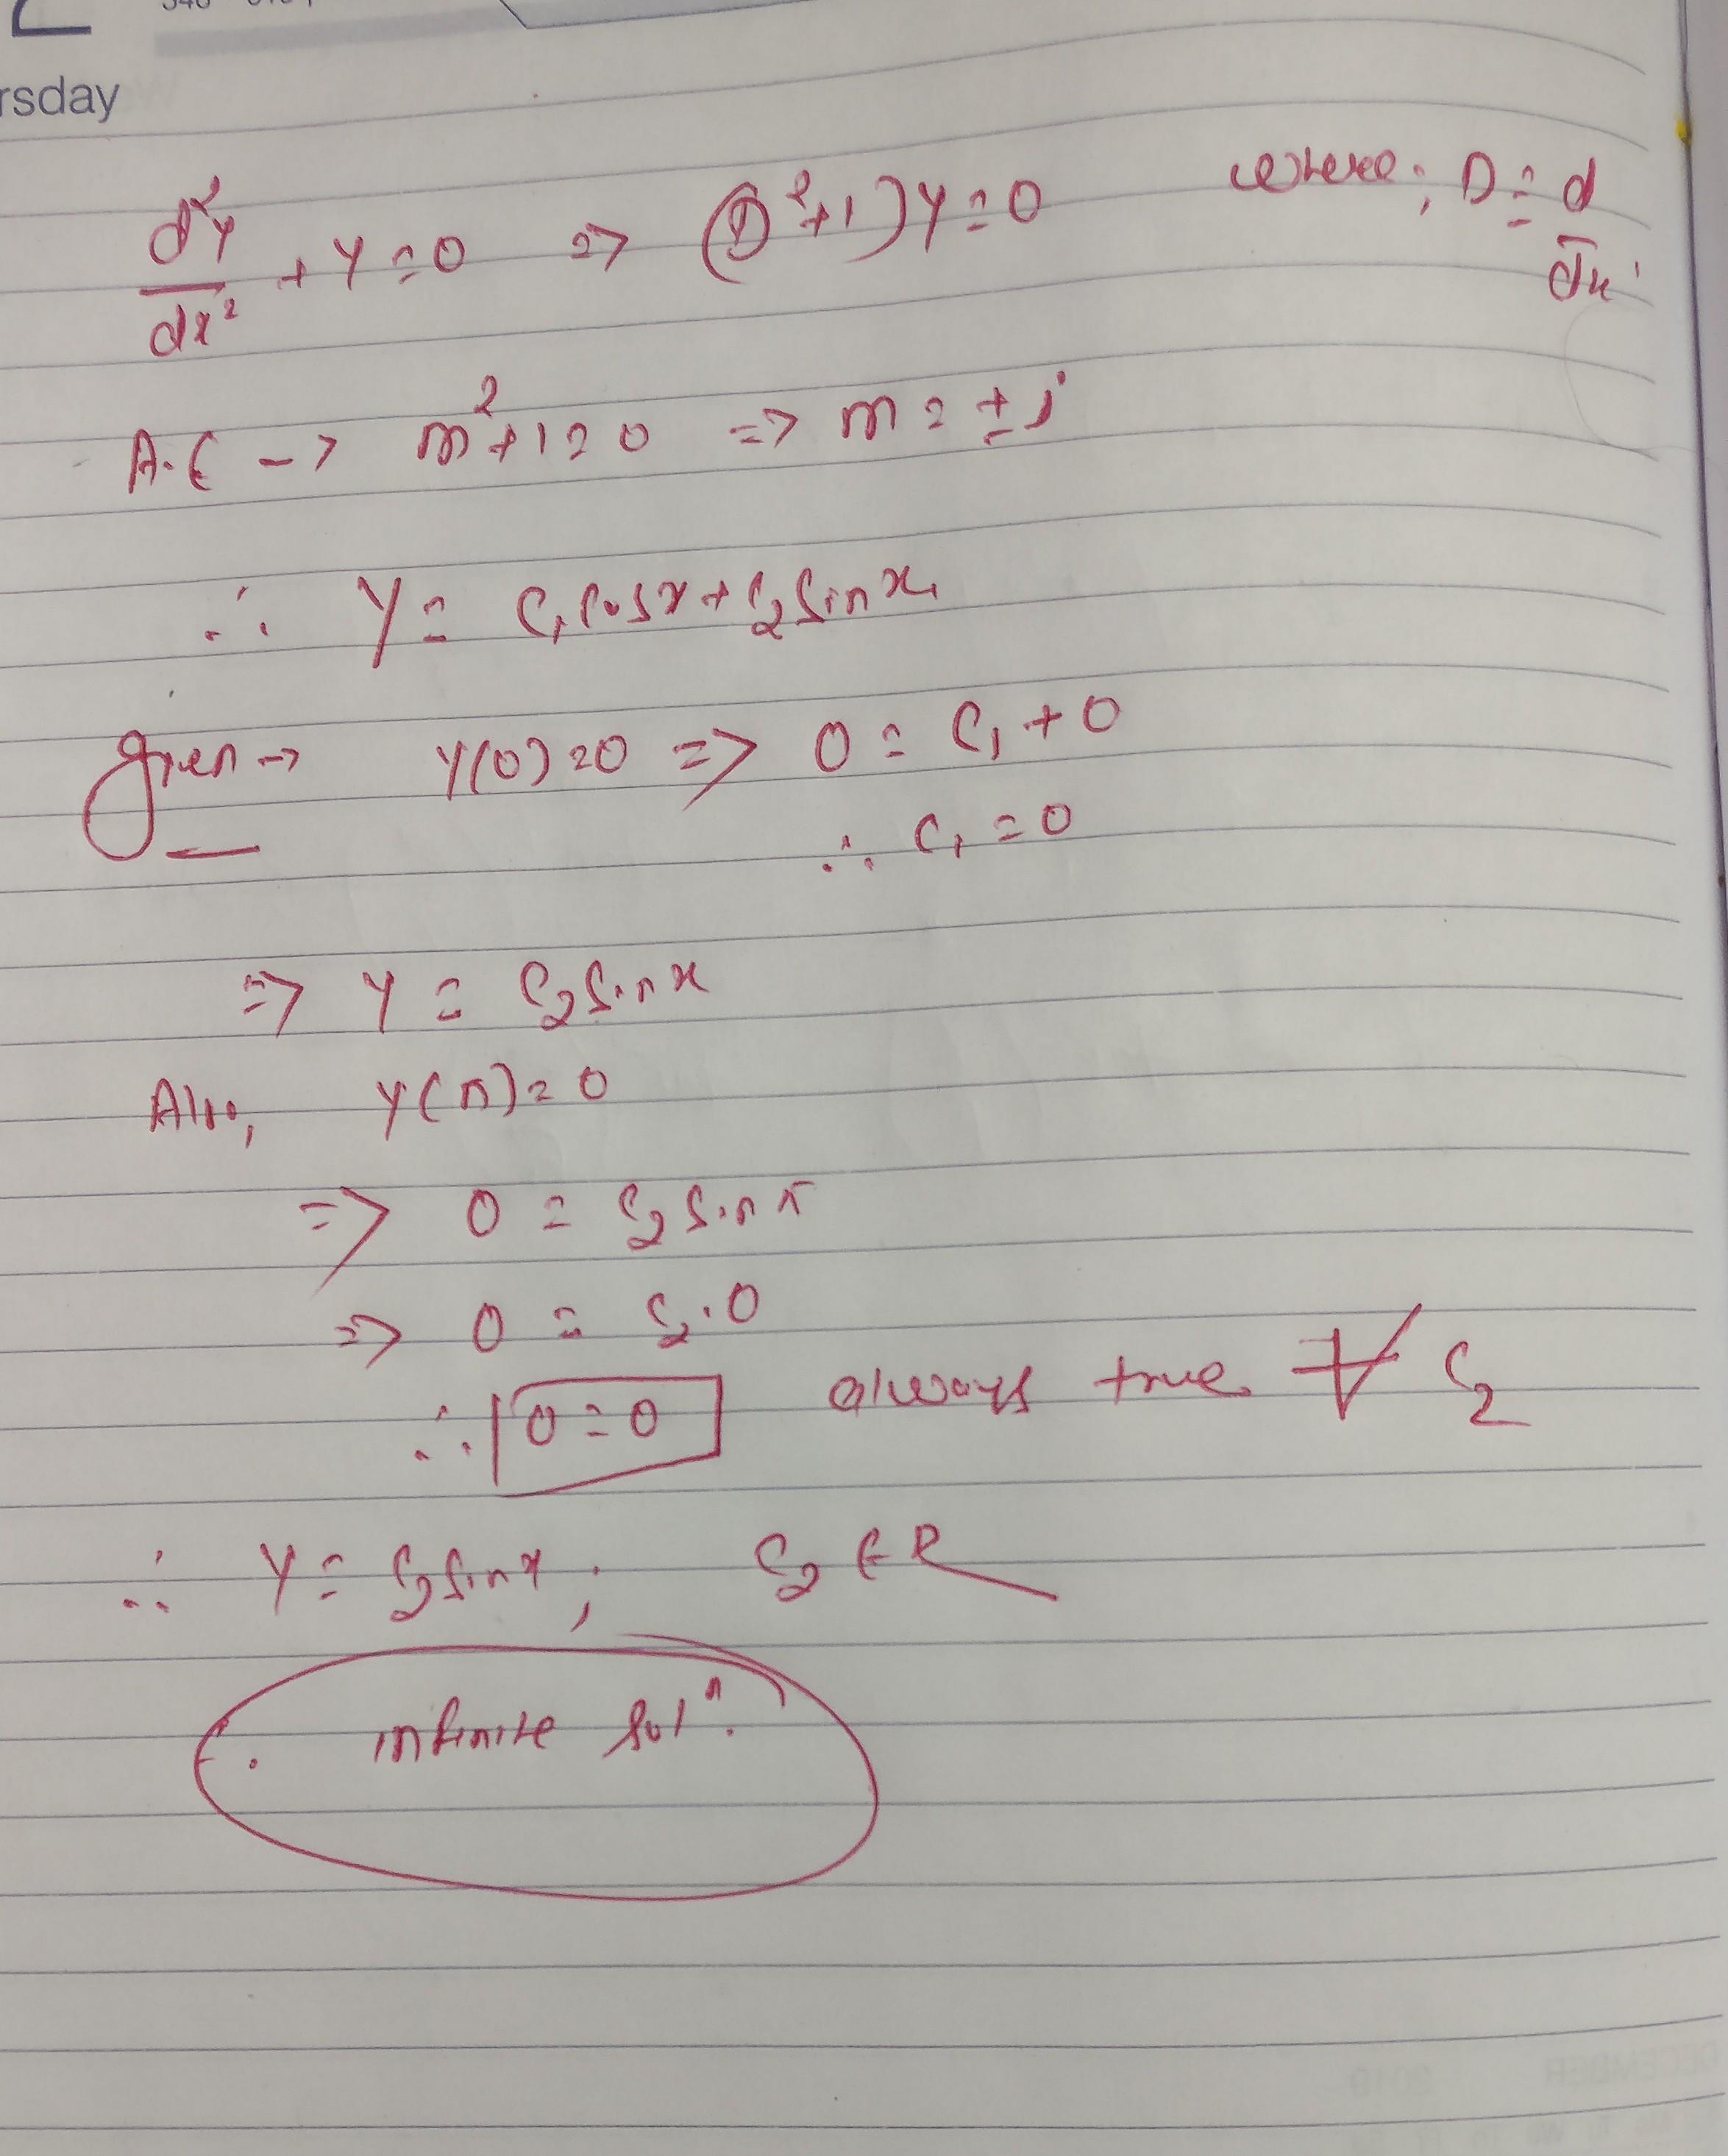 rsday
d²y/dx² + y = 0 => (D²+1)y = 0 where; D = d/dx
A.E -> m²+1 = 0 => m = ± i
∴ y = C₁ cos x + C₂ sin x
given -> y(0) = 0 => 0 = C₁ + 0
∴ C₁ = 0
=> y = C₂ sin x
Also, y(π) = 0
=> 0 = C₂ sin π
=> 0 = C₂·0
∴ 0 = 0 always true ∀ C₂
∴ y = C₂ sin x ; C₂ ∈ R
infinite solⁿ.
DECEMBER 2019